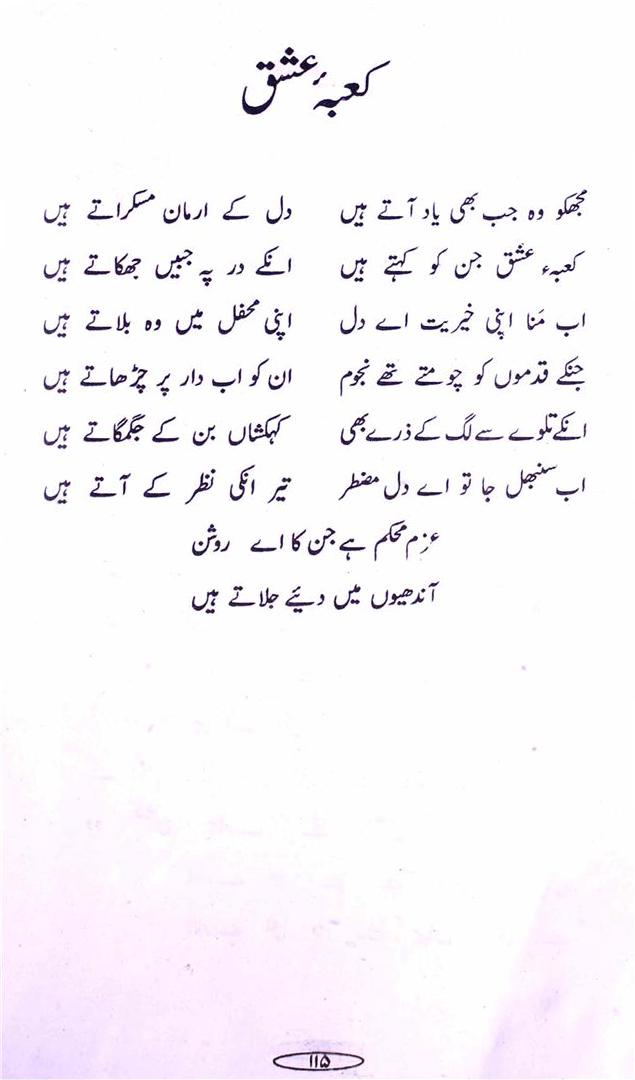 کعبۂ عشق
مجھکو وہ جب بھی یاد آتے ہیں دل کے ارمان مسکراتے ہیں
کعبہء عشق جن کو کہتے ہیں انکے در پہ جبیں جھکاتے ہیں
اب مَنا اپنی خیریت اے دل اپنی محفل میں وہ بلاتے ہیں
جنکے قدموں کو چومتے تھے نجوم ان کو اب دار پر چڑھاتے ہیں
انکے تلوے سے لگ کے ذرے بھی کہکشاں بن کے جگمگاتے ہیں
اب سنبھل جا تو اے دل مضطر تیر انکی نظر کے آتے ہیں
عزم محکم ہے جن کا اے روشن
آندھیوں میں دیئے جلاتے ہیں
۱۱۵